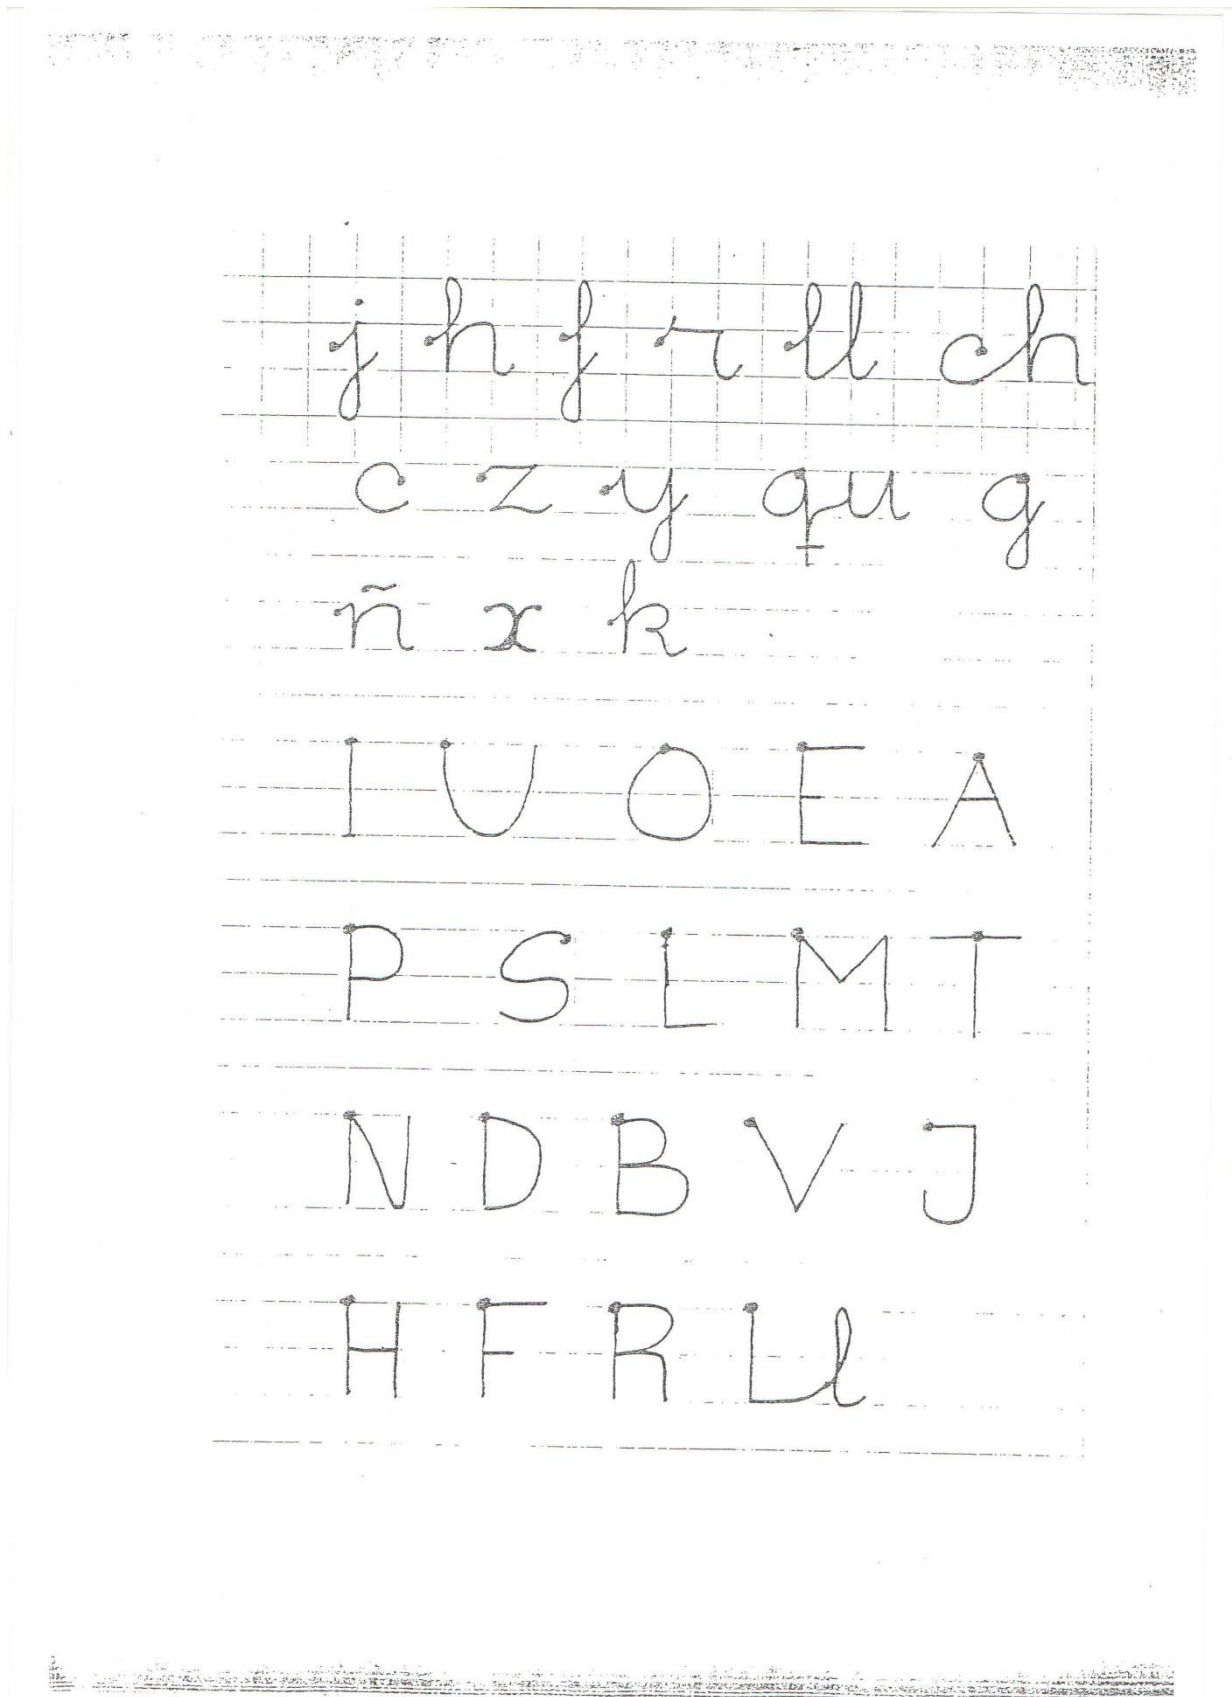 j h f r ll ch
c z y qu g
ñ x k
I U O E A
P S L M T
N D B V J
H F R Ll